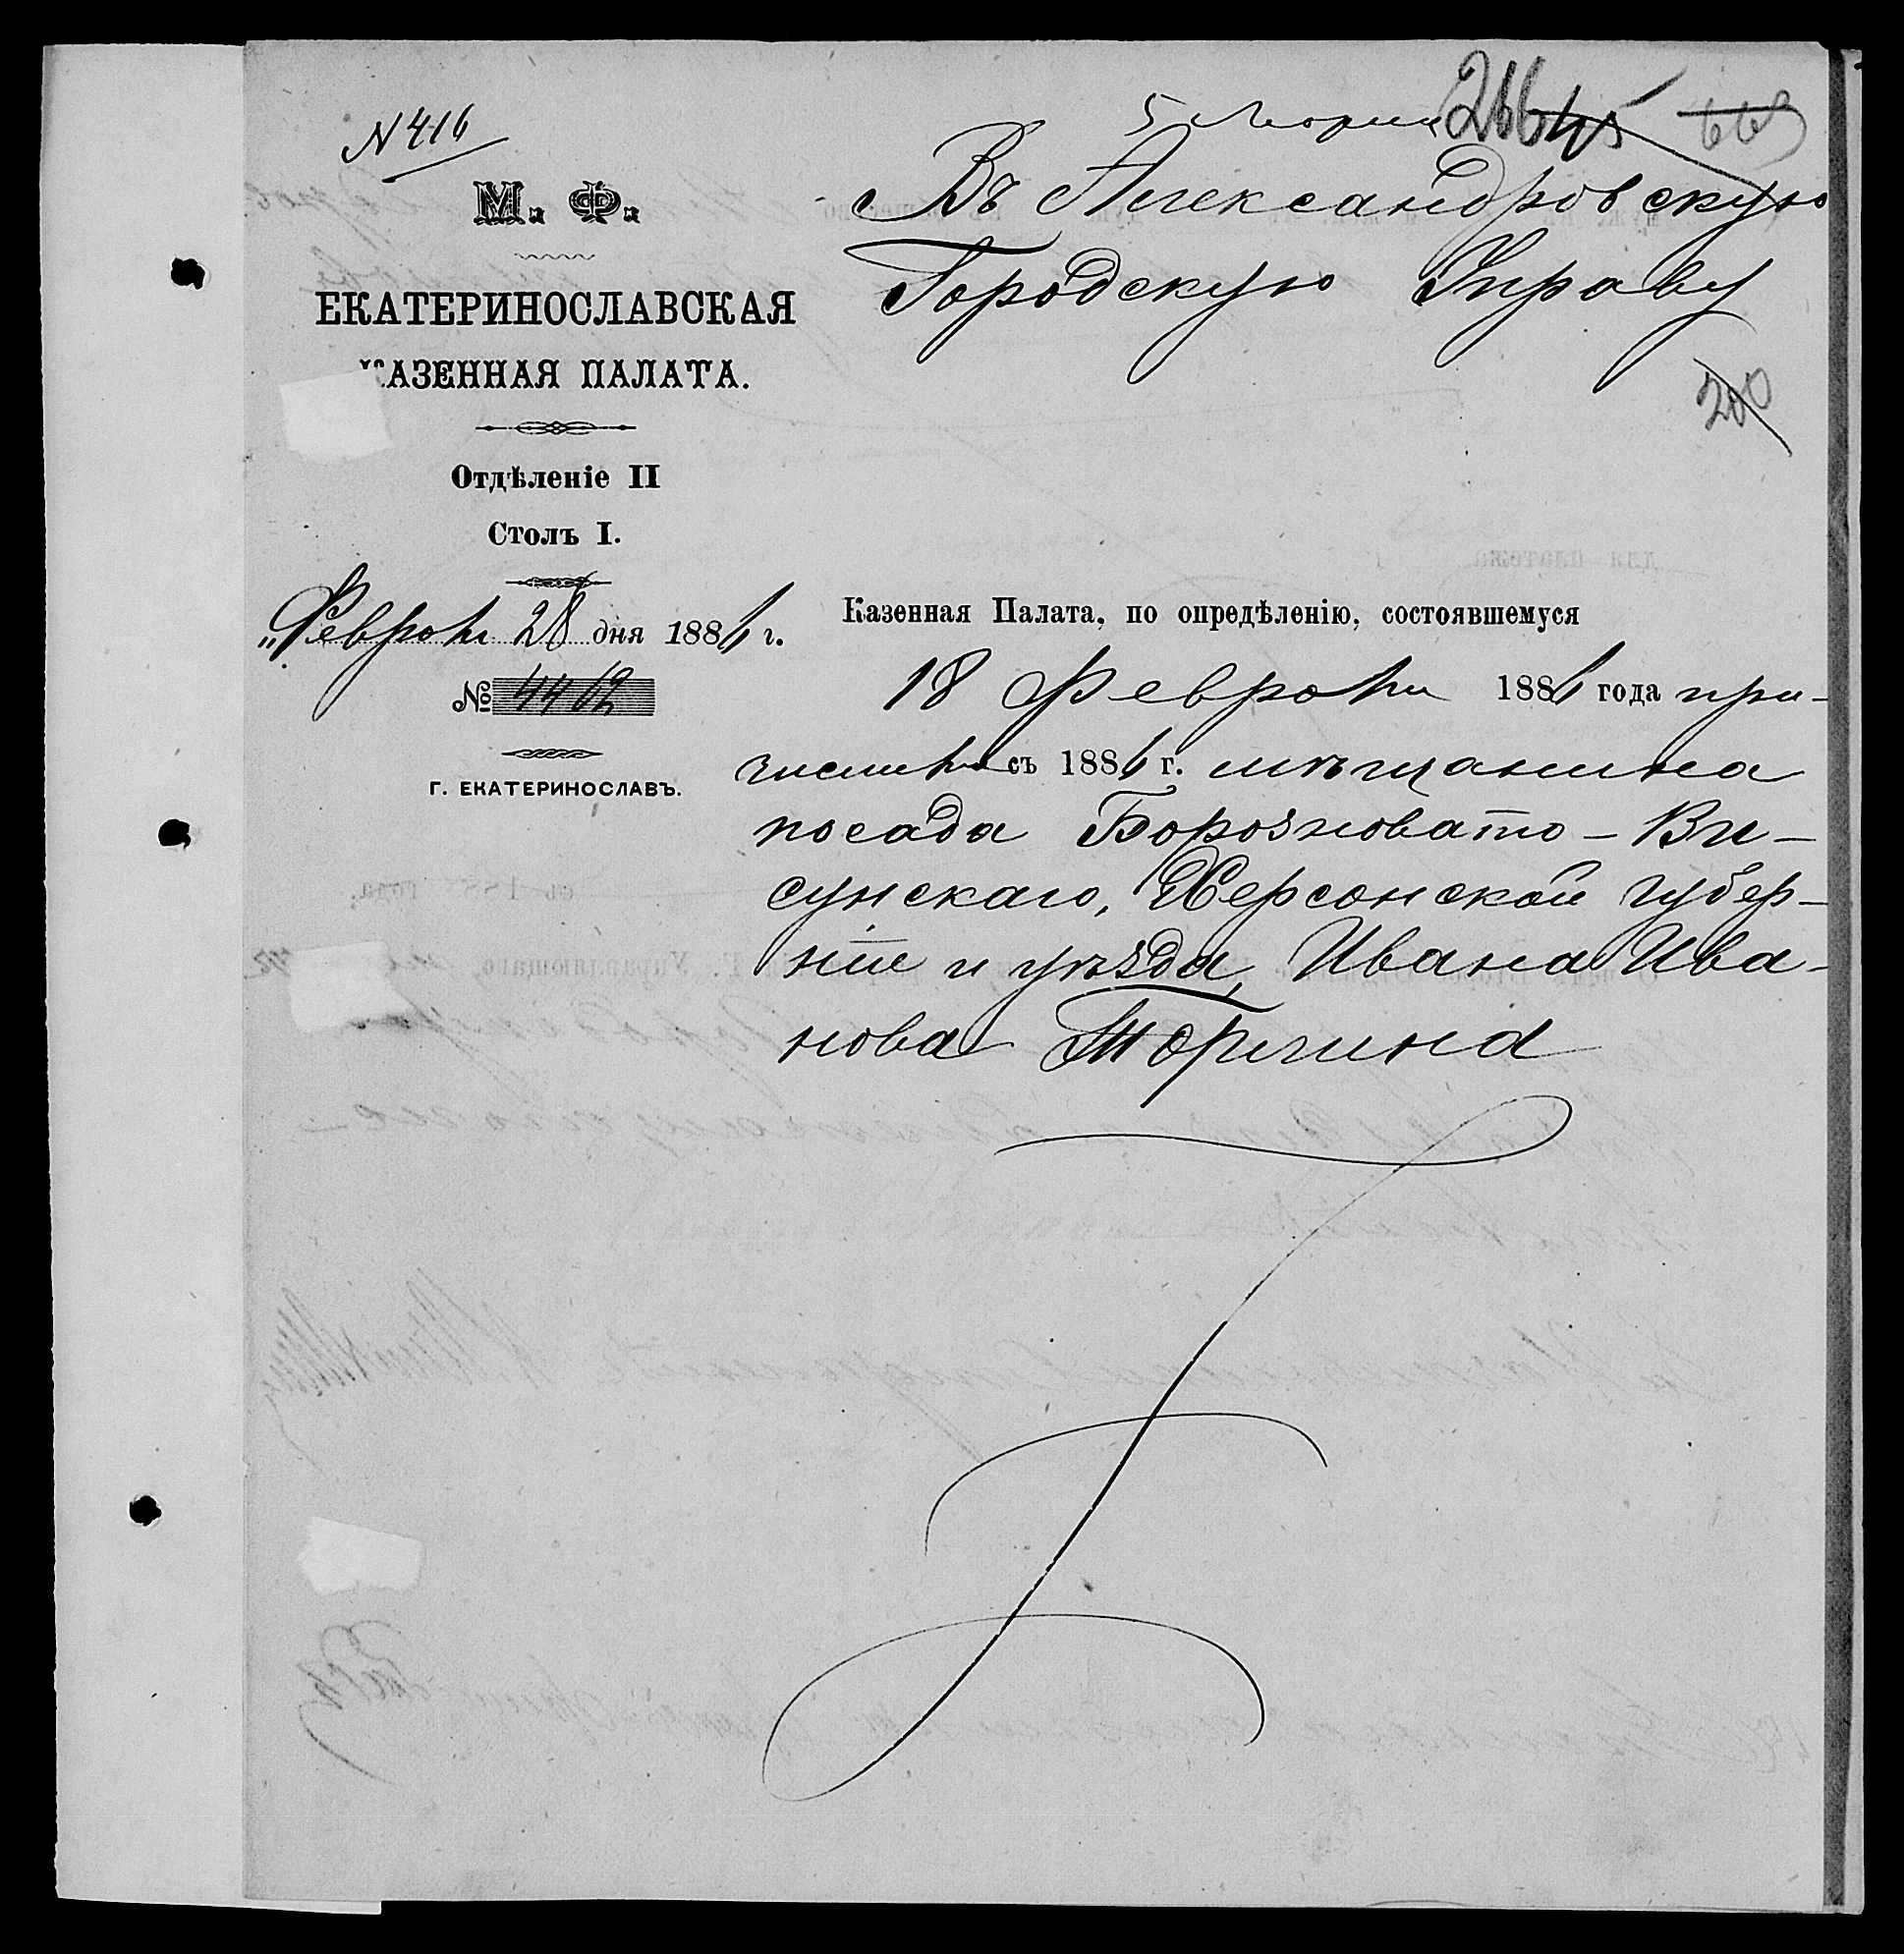 N 416
5 Марта
266
663
М. Ф.
ЕКАТЕРИНОСЛАВСКАЯ
КАЗЕННАЯ ПАЛАТА.
Отдѣленіе II
Столъ I.
„Февраля 28 дня 1886 г.
№ 4462
Г. ЕКАТЕРИНОСЛАВЪ.
Въ Александровскую
Городскую Управу
200
Казенная Палата, по опредѣленію, состоявшемуся
18 Февраля 1886 года при-
числила съ 1886 г. мѣщанина
посада Борозновато-Ви-
сунскаго, Херсонской губер-
ніи и уѣзда, Ивана Ива-
нова Торгина